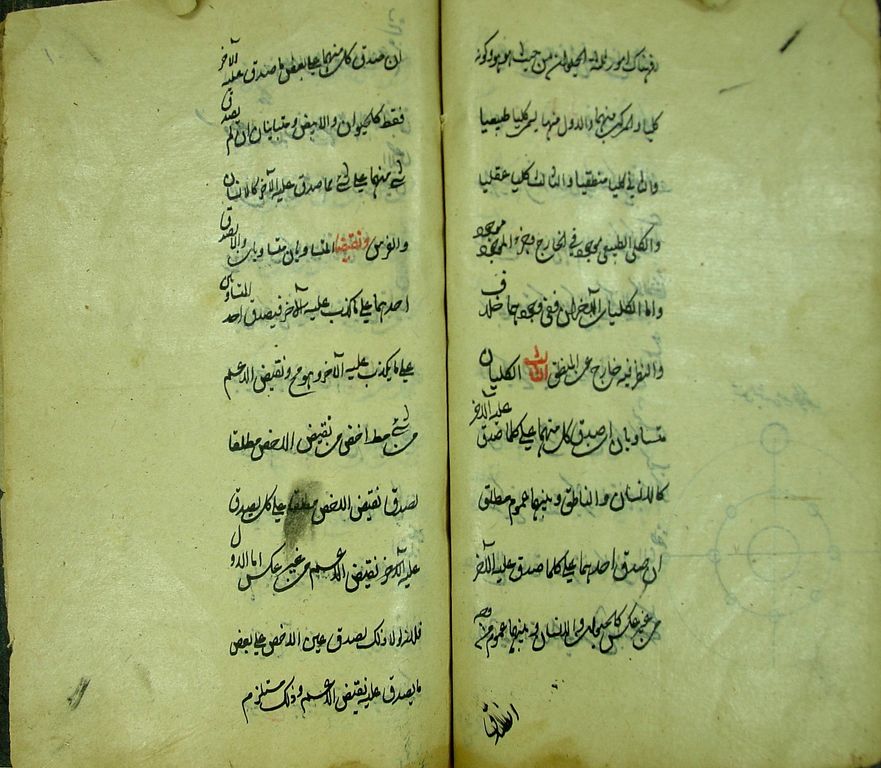 فهناك امور ثلثة الحيوان من حيث هو هو وكونه
كليا والمركب منهما والاول منها يسمى كليا طبيعيا
والثاني كليا منطقيا والثالث كليا عقليا
والكلي الطبيعي موجود في الخارج وجزء الموجود موجود
واما الكليان الاخران ففي وجودهما خلاف
والنظر فيه خارج عن المنطق الثالث الكليان
متساويان ان صدق كل منهما على كلما صدق عليه الاخر
كالانسان والناطق وبينهما عموم مطلق
ان صدق احدهما على كلما صدق عليه الاخر
من غير عكس كالحيوان والانسان وبينهما عموم من وجه
ان صدق
ان صدق كل منهما على بعض ما صدق عليه الاخر
فقط كالحيوان والابيض ومتباينان ان لم يصدق
شئ منهما على شئ مما صدق عليه الاخر كالانسان
والفرس ونقيضا المتساويان متساويان والا يصدق
احدهما على ما كذب عليه الاخر فيصدق احد المتساويين
على ما يكذب عليه الاخر وهو مح ونقيض الاعم
من شئ مطلقا اخص من نقيض الاخص مطلقا
لصدق نقيض الاخص مطلقا على كل يصدق
عليه الاخر نقيض الاعم من غير عكس اما الاول
فلانه لولا ذلك لصدق عين الاخص على بعض
ما يصدق عليه نقيض الاعم وذلك مستلزم